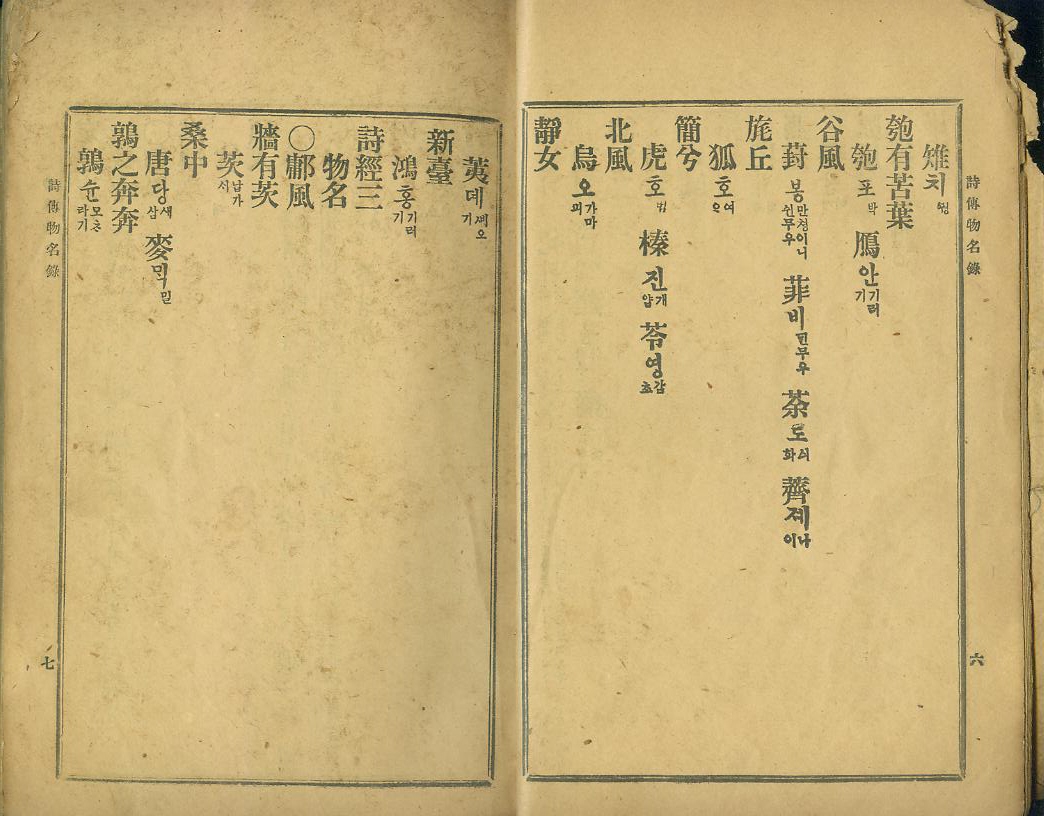 詩傳物名錄
六
雉 치 꿩
匏有苦葉
匏 포 박 鴈 안 기러기
谷風
葑 봉 만청이니 쉰무우 菲 비 쉰무우 荼 도 薺 졔 나이
旄丘
狐 호 여으
簡兮
虎 호 범 榛 진 개얌 苓 영 감초
北風
烏 오 가마괴
靜女
荑 뎨
新臺
鴻 홍 기러기
詩經三
物名
○鄘風
牆有茨
茨 남가시
桑中
唐 당 새삼 麥 믹 밀
鶉之奔奔
鶉 슌
詩傳物名錄
七